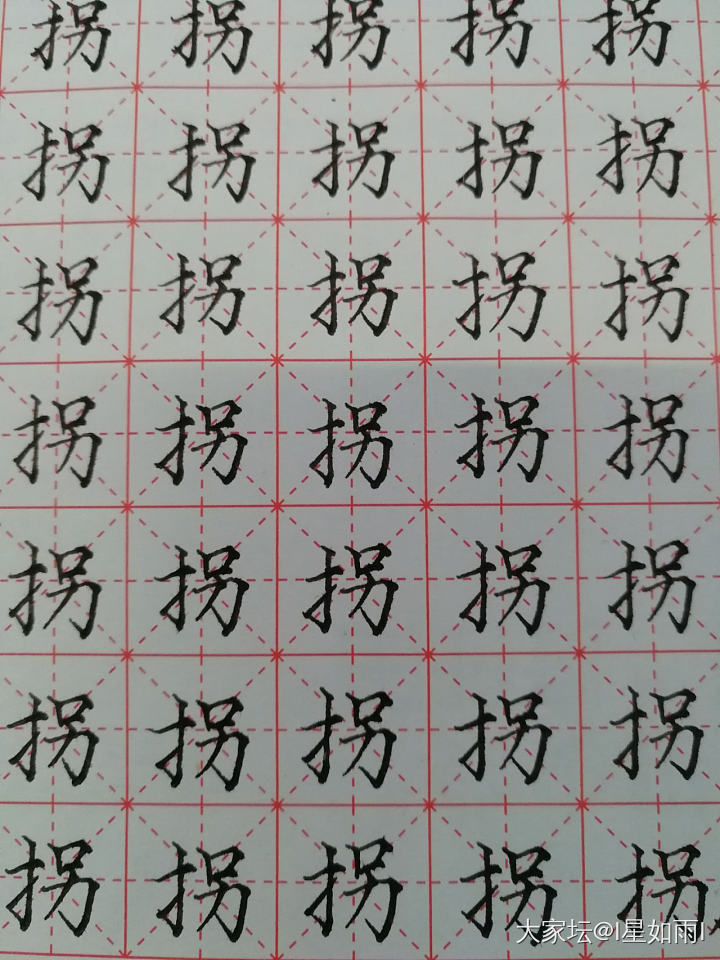 拐拐拐拐拐
拐拐拐拐拐
拐拐拐拐拐
拐拐拐拐拐
拐拐拐拐拐
拐拐拐拐拐
拐拐拐拐拐
大家坛@I星如雨I